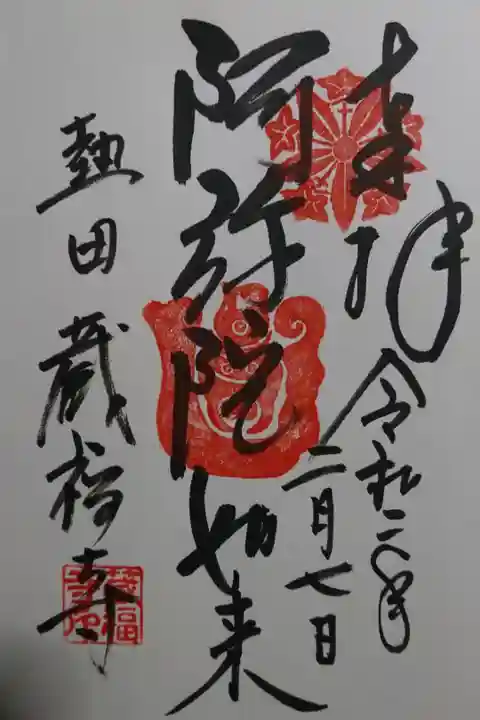 奉拝
令和二年
二月七日
阿弥陀如来
熱田 蔵福寺
蔵福
寺印